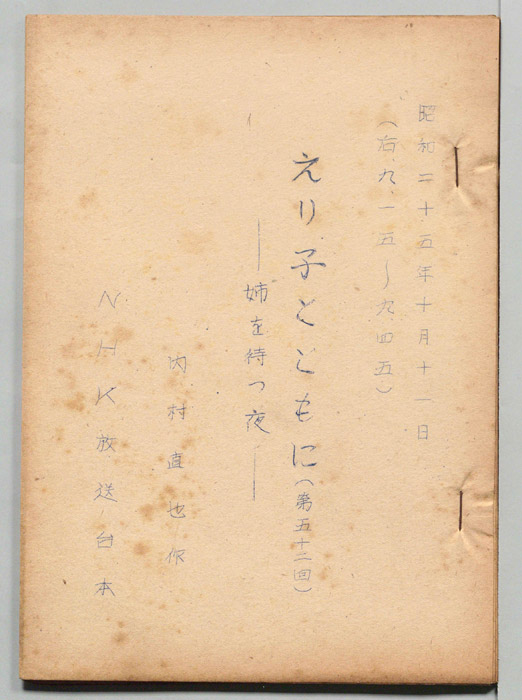 昭和二十五年十月十一日
（后九一五〜九四五）
えり子とともに（第五十二回）
―姉を待つ夜―
内村直也作
NHK放送台本